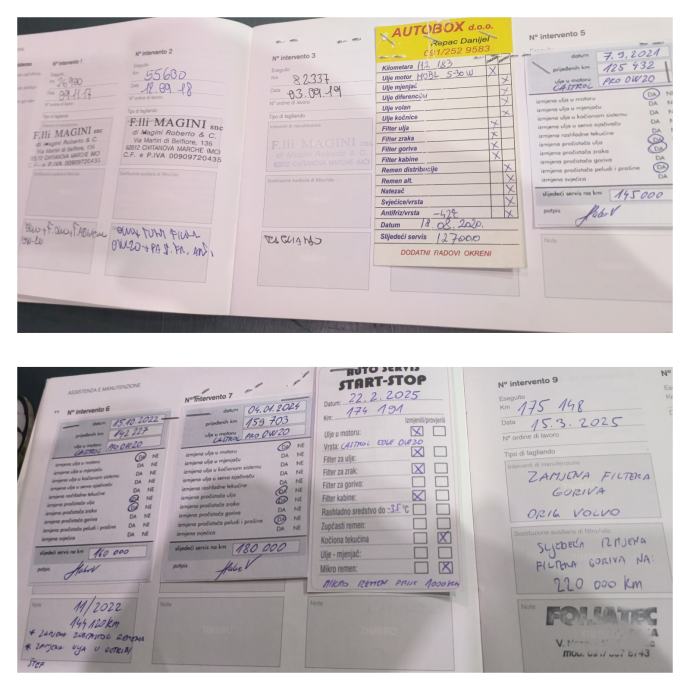 N° intervento 1
Eseguito
09.11.17
F.lli MAGINI snc
di Magini Roberto & C.
Via Martiri di Belfiore, 136
62012 CIVITANOVA MARCHE (MC)
C.F. e P.IVA 00909720435
0W-20
N° intervento 2
Eseguito
Km 55630
Data 18.09.18
N° ordine di lavoro
Tipo di tagliando
F.lli MAGINI snc
di Magini Roberto & C.
Via Martiri di Belfiore, 136
62012 CIVITANOVA MARCHE (MC)
C.F. e P.IVA 00909720435
N° intervento 3
Eseguito
Km 82337
Data 03.09.19
N° ordine di lavoro
Tipo di tagliando
F.lli MAGINI snc
TAGLIANDO
AUTOBOX d.o.o.
Repac Danijel
091/252 9583
Kilometara 112 183
Ulje motor MOBIL 5-30W
Ulje mjenjač
Ulje diferencija
Ulje volan
Ulje kočnice
Filter ulja
Filter zraka
Filter goriva
Filter kabine
Remen distribucije
Remen alt.
Natezač
Svjećice/vrsta
Antifriz/vrsta -42°
Datum 18.08.2020.
Slijedeći servis 127000
DODATNI RADOVI OKRENI
N° intervento 5
datum 7.9.2021
prijeđenih km 125 432
ulje u motoru CASTROL PRO 0W20
izmjena ulja u motoru DA NE
izmjena ulja u mjenjaču DA
izmjena ulja u kočionom sistemu DA
izmjena ulja u servo upravljaču DA
izmjena rashladne tekućine DA
izmjena pročistača ulja DA
izmjena pročistača zraka DA
izmjena pročistača goriva DA
izmjena pročistača peludi i prašine DA
izmjena svjećica DA
slijedeći servis na km 145000
potpis
Note
ASSISTENZA E MANUTENZIONE
N° intervento 6
datum 15.10.2022
prijeđenih km 142 227
ulje u motoru CASTROL PRO 0W20
izmjena ulja u motoru DA NE
izmjena ulja u mjenjaču DA NE
izmjena ulja u kočionom sistemu DA NE
izmjena ulja u servo upravljaču DA NE
izmjena rashladne tekućine DA NE
izmjena pročistača ulja DA NE
izmjena pročistača zraka DA NE
izmjena pročistača goriva DA NE
izmjena pročistača peludi i prašine DA NE
izmjena svjećica DA NE
slijedeći servis na km 160 000
potpis
Note
11/2022
144 120 km
N° intervento 7
datum 04.01.2024
prijeđenih km 159 703
ulje u motoru CASTROL PRO 0W20
izmjena ulja u motoru DA NE
izmjena ulja u mjenjaču DA NE
izmjena ulja u kočionom sistemu DA NE
izmjena ulja u servo upravljaču DA NE
izmjena rashladne tekućine DA NE
izmjena pročistača ulja DA NE
izmjena pročistača zraka DA NE
izmjena pročistača goriva DA NE
izmjena pročistača peludi i prašine DA NE
izmjena svjećica DA NE
slijedeći servis na km 180 000
potpis
Note
AUTO SERVIS
START-STOP
Datum: 22.2.2025
Km: 174 191
Izmijeniti/provjeriti
Ulje u motoru:
Vrsta: CASTROL EDGE 0W20
Filter za ulje:
Filter za zrak:
Filter za gorivo:
Filter kabine:
Rashladno sredstvo do -35 °C
Zupčasti remen:
Kočiona tekućina
Ulje - mjenjač:
Mikro remen:
MIKRO REMEN PRIJE 1000 KM
N° intervento 9
Eseguito
Km 175 148
Data 15.3.2025
N° ordine di lavoro
Tipo di tagliando
Interventi di manutenzione
ZAMJENA FILTERA
GORIVA
ORIG VOLVO
SLJEDEĆA IZMJENA
FILTERA GORIVA NA:
220 000 km
Note
FOLIATEC